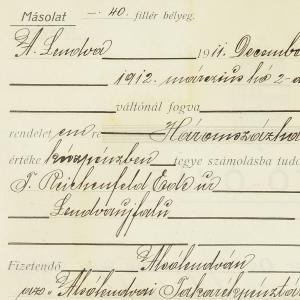 Másolat —. 40. fillér bélyeg.
A. Lendva 1911. Decembe
1912. márczius hó 2-
váltónál fogva
rendelet em re Háromszázha
értéke készpénzben tegye számolásba tudó
T. Reichenfeld Ede ur
Lendvaujfalu
Fizetendő Alsólendván
az Alsólendvai Takarékpénztá